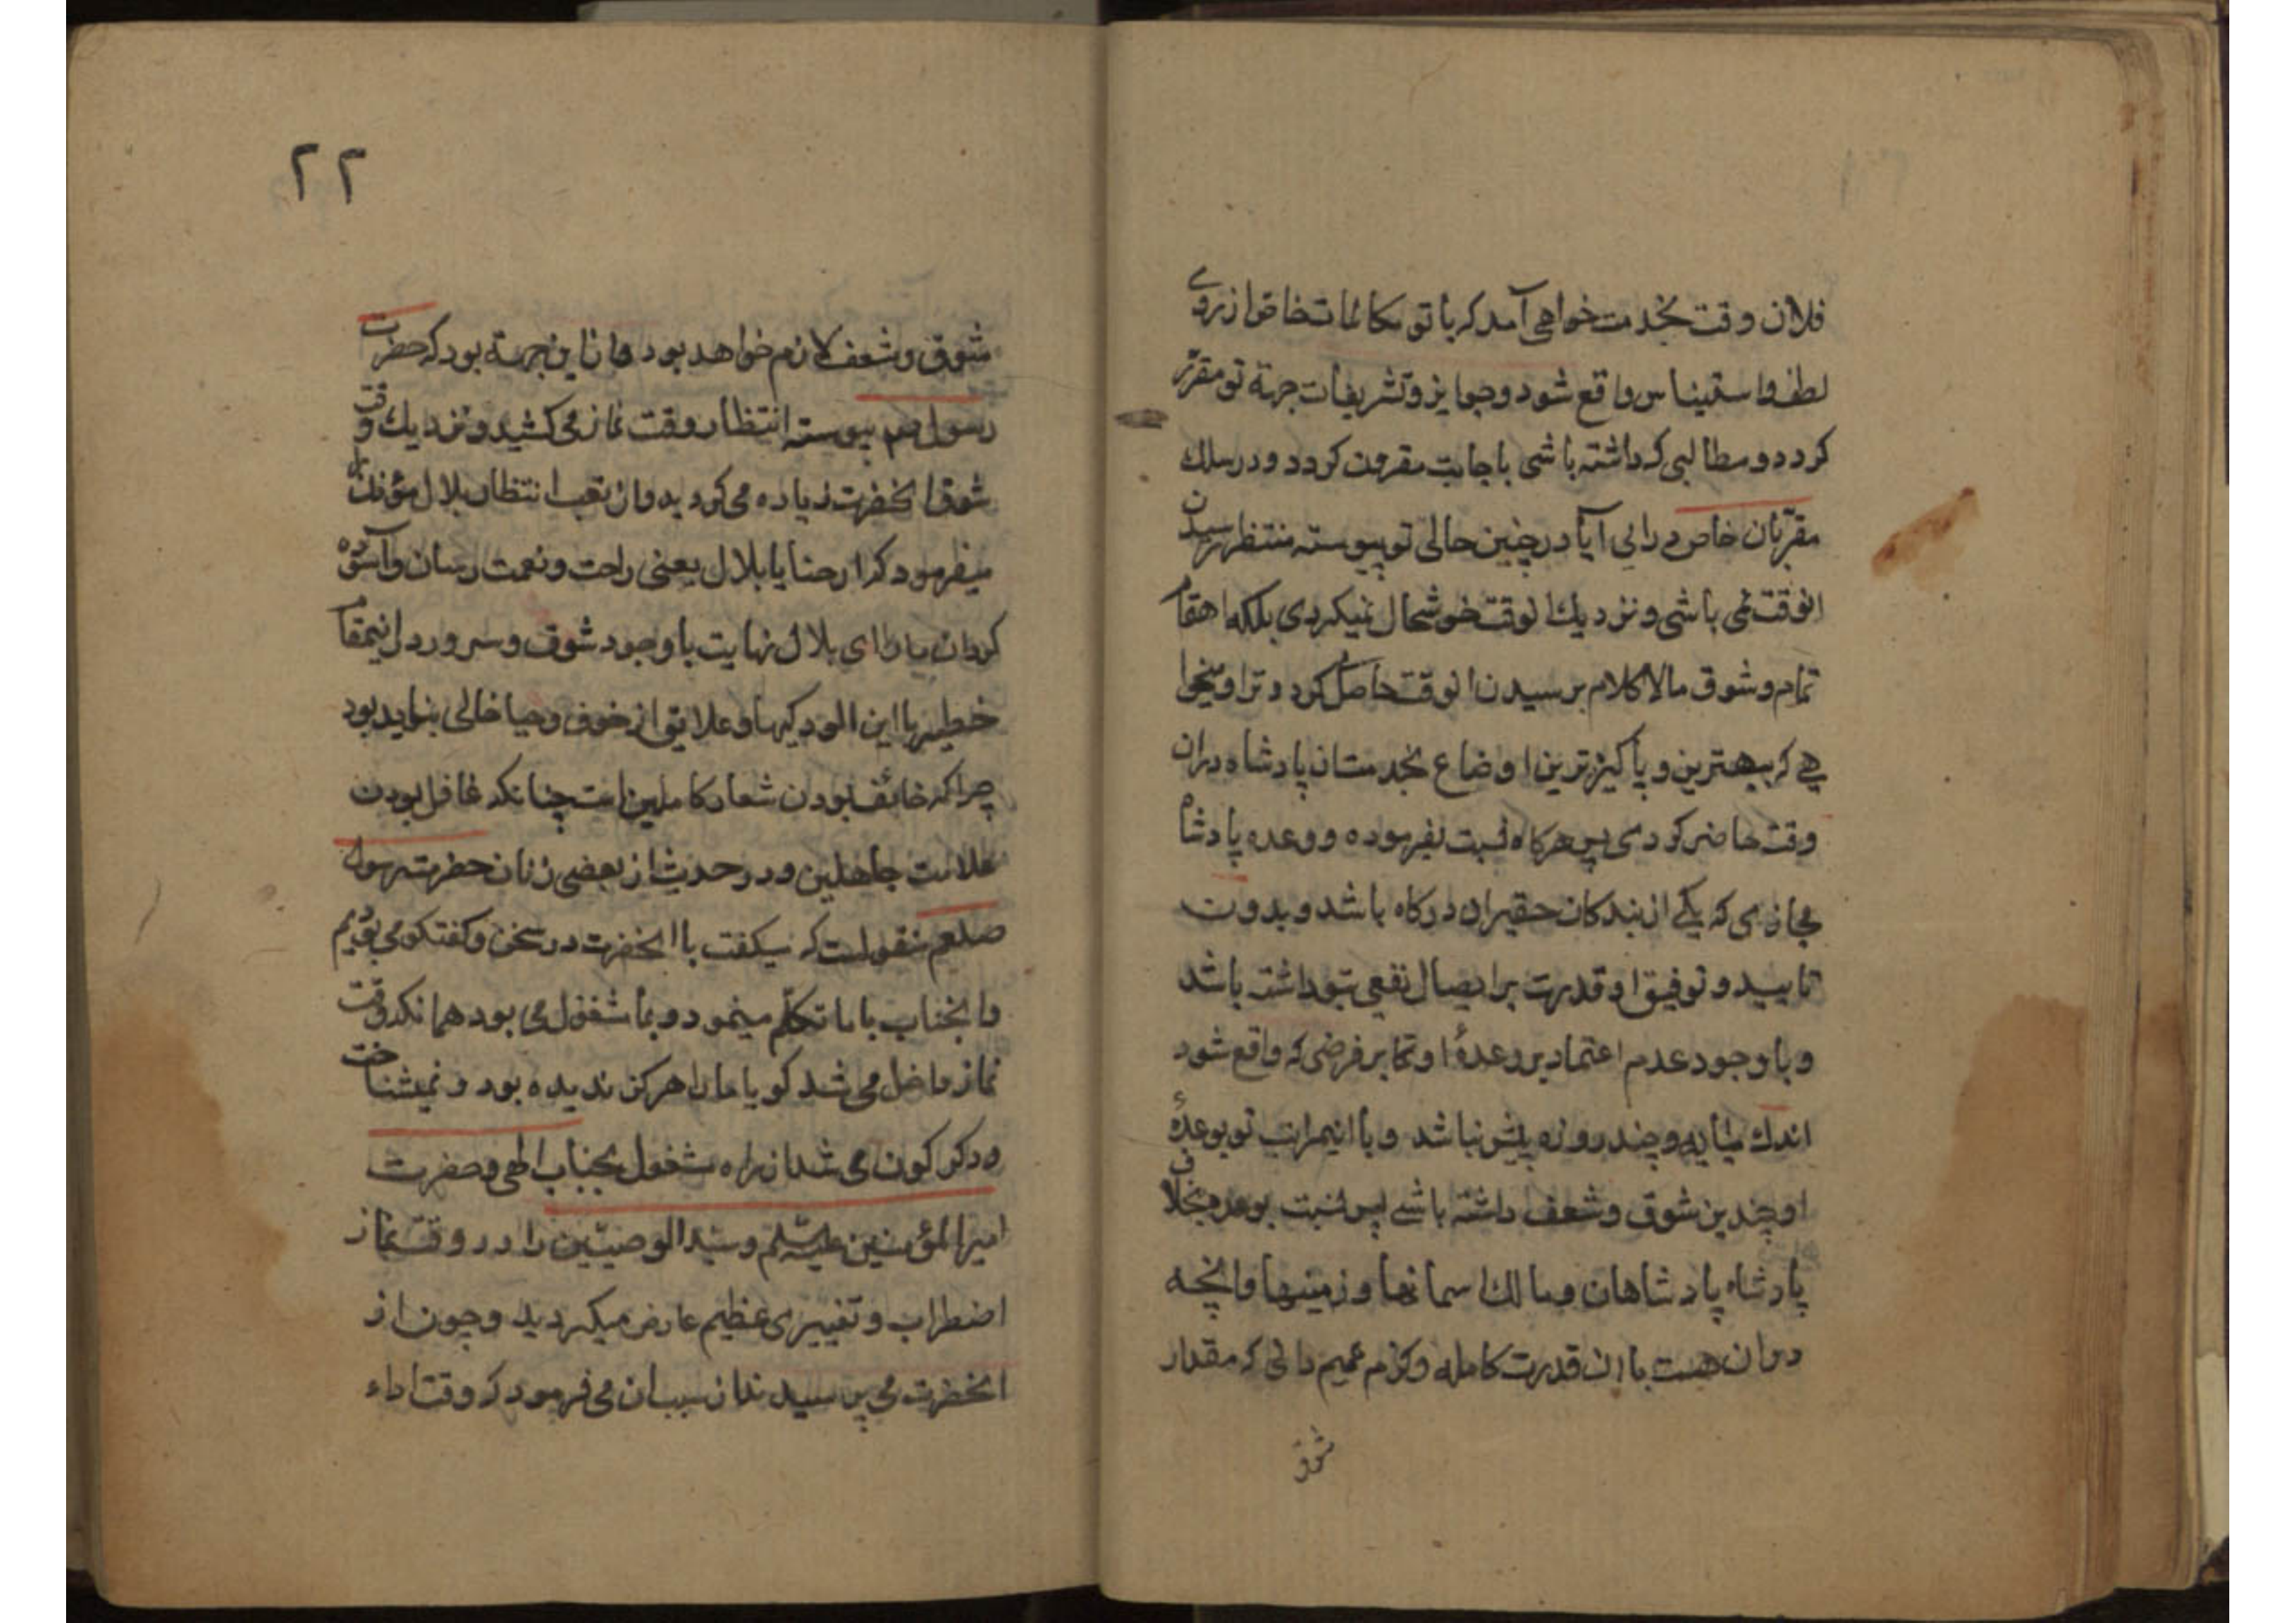 فلان وقت بخدمت خواهی آمد که با تو مکالمات خاص از روی
لطف و استیناس واقع شود و جوایز و تشریفات جهة تو مقرر
کردد و مطالبی که داشته باشی باجابت مقرون کردد و در سلک
مقربان خاص درائی آیا در چنین حالی تو پیوسته منتظر رسیدن
انوقت نمی باشی و نزدیک انوقت خوشحال نمیکردی بلکه اهتمام
تمام و شوق مالاکلام برسیدن انوقت حاصل کردد و ترا و میخوا
هی که ببهترین و پاکیزه ترین اوضاع بخدمت ان پادشاه دران
وقت حاضر کردی پس هرکاه نسبت بفرموده و وعده پادشاه
مجازی که یکی از بندکان حقیر ان درکاه باشد و بدون
تایید و توفیق او قدرت بر ایصال نفعی بتو نداشته باشد
و با وجود عدم اعتماد بر وعدهٔ او که بر فرضی که واقع شود
اندک میآید و چند روزه پیش نباشد و با اینمراتب تو بوعدهٔ
او چندین شوق و شعف داشته باشی پس نسبت بوعده بخلاف
پادشاه پادشاهان و مالک اسمانها و زمینها و انچه
دران هست با ان قدرت کامله و کرم عمیم دانی که مقدار
شوق
۲۲
شوق و شعف لازم خواهد بود و از این جهة بود که حضرت
رسول ص پیوسته انتظار وقت نماز می کشید و نزدیک وقت
شوق انحضرت زیاده می کردید و از تعب انتظار بلال مؤذن را
میفرمود که ارحنا یا بلال یعنی راحت و نعمت رسان و آسوده
کردان ما را ای بلال نهایت با وجود شوق و سرور دل اینمقام
خطیر با این الودکیها و علایق از خوف و حیا خالی نباید بود
چرا که خائف بودن شعار کاملین است چنانکه غافل بودن
علامت جاهلین و در حدیث از بعضی زنان حضرت رسول
صلعم منقولست که میکفت با انحضرت در سخن و کفتکو می بودیم
و انجناب با ما تکلم مینمود و بما مشغول می بود همانکه وقت
نماز داخل می شد کویا ما را هرکز ندیده بود و نمیشناخت
و دکرکون می شد از راه شغول بجناب الهی و حضرت
امیرالمؤمنین علیه السلم و سید الوصیین را در وقت نماز
اضطراب و تغییری عظیم عارض میکردید و چون از
انحضرت می پرسیدند از سبب ان می فرمود که وقت اداء